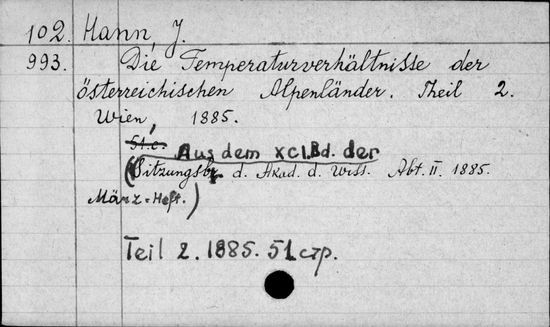 102. Hann, J.
993. Die Temperaturverhältnisse der
österreichischen Alpenländer. Theil 2.
Wien, 1885.
51.c.
Aus dem XCI.Bd. der
(Sitzungsbr. d. Akad. d. Wiss. Abt. II. 1885.
März-Heft.)
Teil 2. 1885. 51 стр.